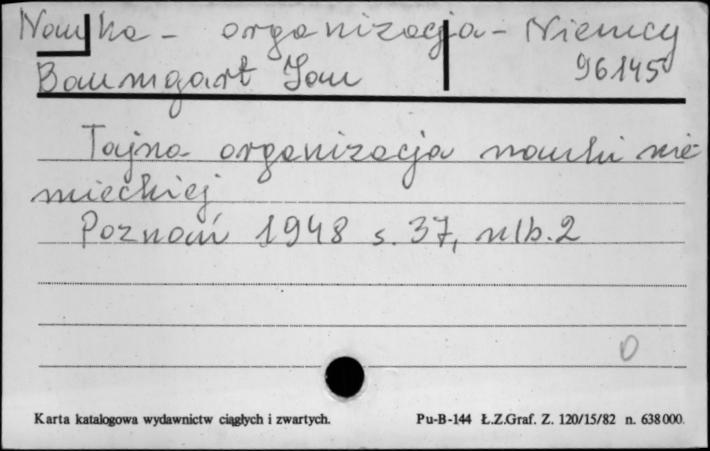 Nauka - organizacja - Niemcy
Baumgart Jan 96145
Tajna organizacja nauki nie-
mieckiej
Poznań 1948 s. 37, nlb. 2
0
Karta katalogowa wydawnictw ciągłych i zwartych. Pu-B-144 Ł.Z.Graf. Z. 120/15/82 n. 638000.